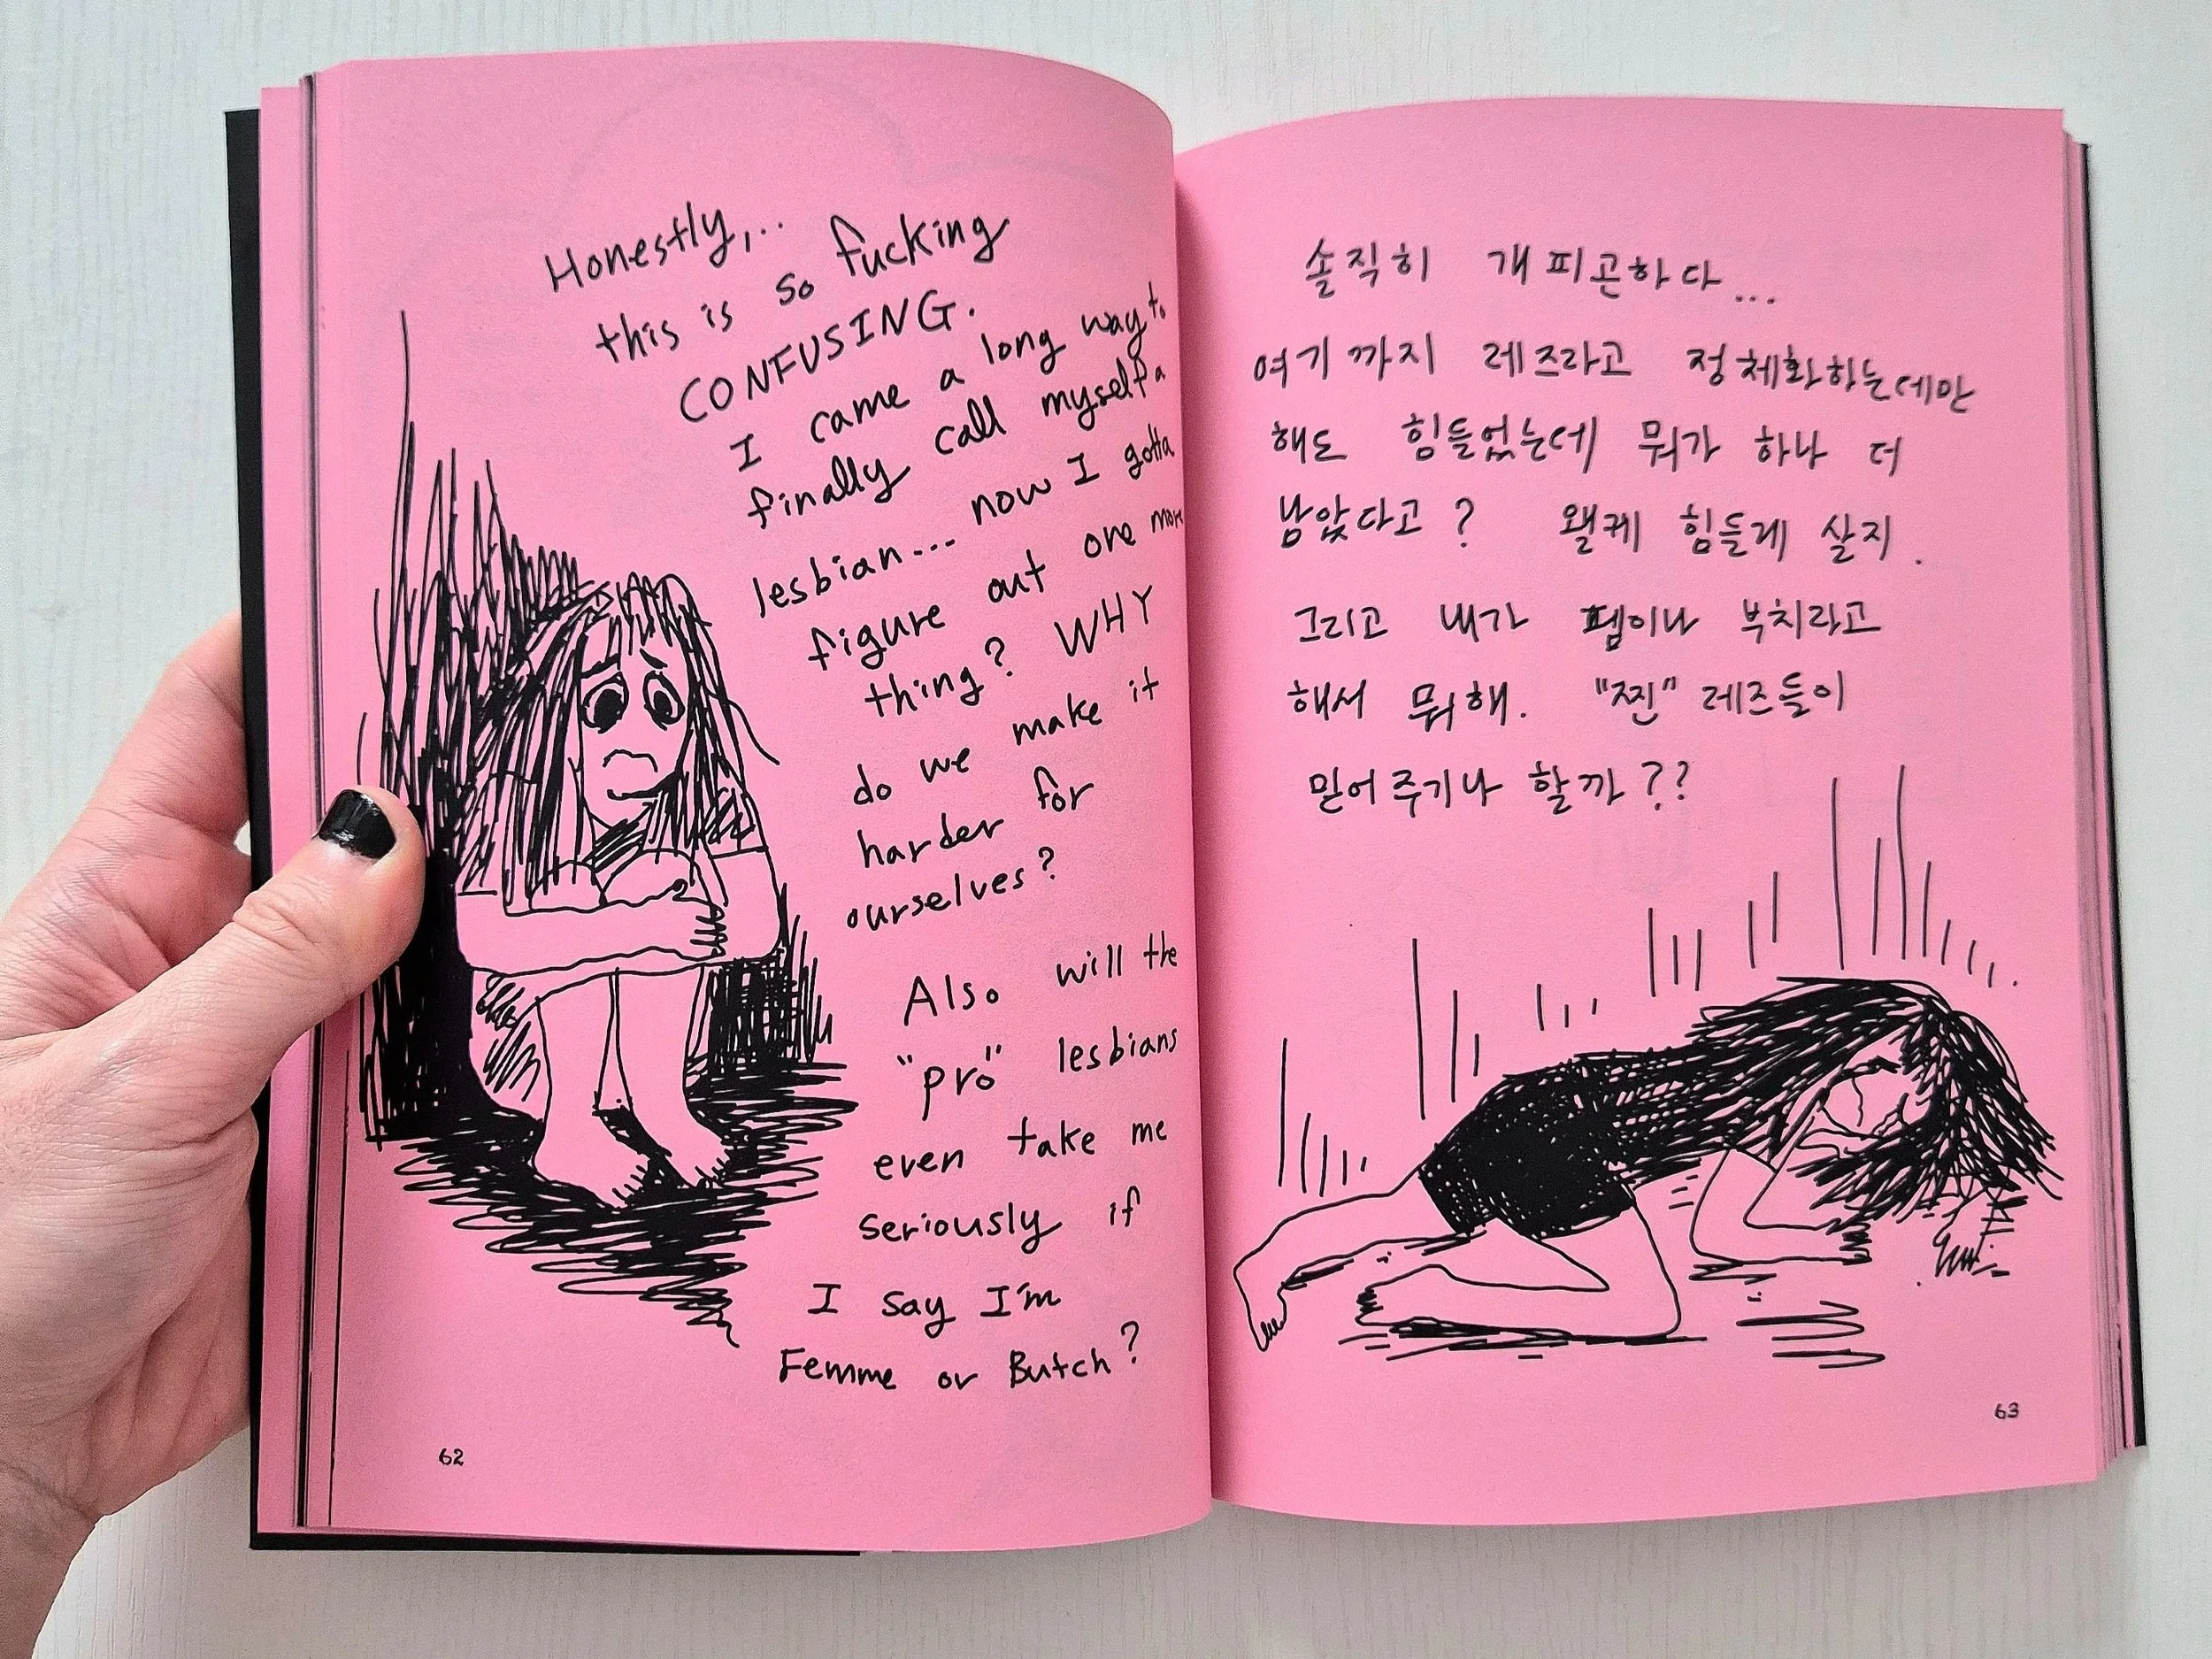 Honestly,..
this is so fucking
CONFUSING.
I came a long way to
finally call myself a
lesbian... now I gotta
figure out one more
thing? WHY
do we make it
harder for
ourselves?
Also will the
"pro" lesbians
even take me
seriously if
I say I'm
Femme or Butch?
62
솔직히 개피곤하다...
여기까지 레즈라고 정체화하는데만
해도 힘들었는데 뭐가 하나 더
남았다고? 왤케 힘들게 살지.
그리고 내가 펨이나 부치라고
해서 뭐해. "찐" 레즈들이
믿어주기나 할까??
63